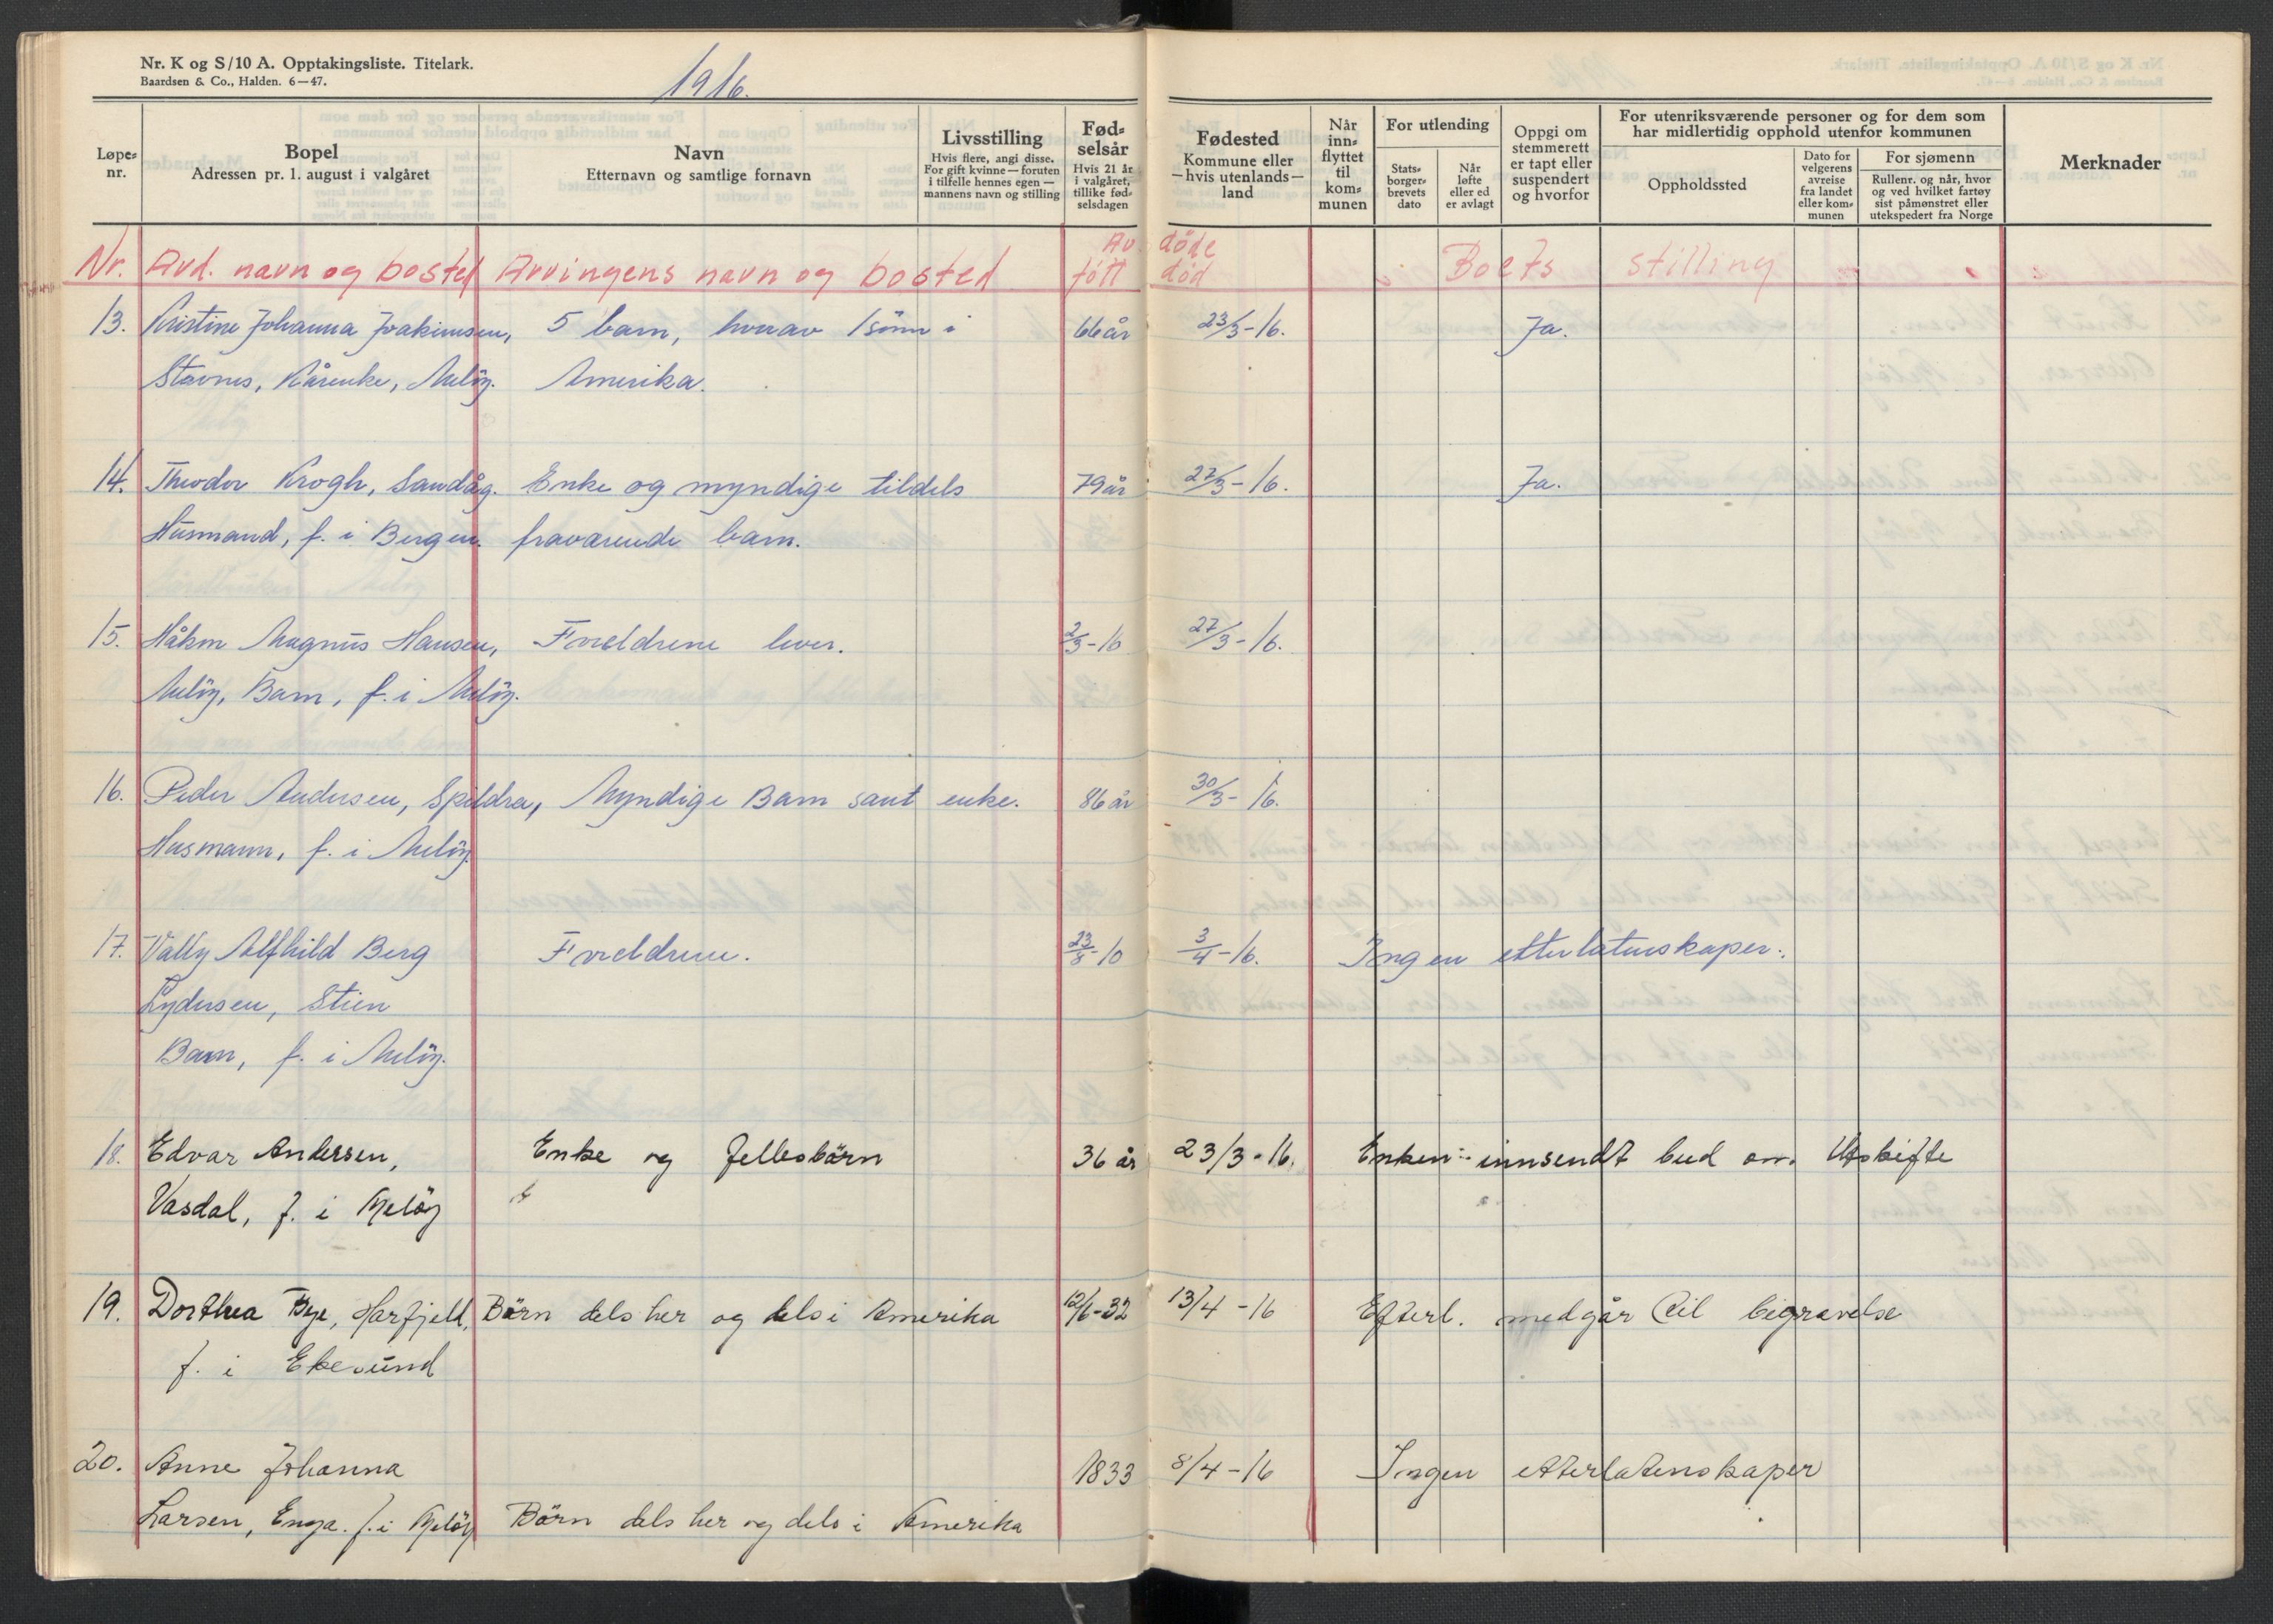 Nr. K og S/10 A. Opptakingsliste. Titelark.
Baardsen & Co., Halden. 6—47.
1916.
Løpe-nr.
Bopel
Adressen pr. 1. august i valgåret
Navn
Etternavn og samtlige fornavn
Livsstilling
Hvis flere, angi disse.
For gift kvinne — foruten
i tilfelle hennes egen —
mannens navn og stilling
Fød-selsår
Hvis 21 år
i valgåret,
tillike fød-selsdagen
Fødested
Kommune eller
— hvis utenlands —
land
Når
inn-flyttet
til
kom-munen
For utlending
Stats-borger-brevets
dato
Når
løfte
eller ed
er avlagt
Oppgi om
stemmerett
er tapt eller
suspendert
og hvorfor
For utenriksværende personer og for dem som
har midlertidig opphold utenfor kommunen
Oppholdssted
Dato for
velgerens
avreise
fra landet
eller kom-munen
For sjømenn
Rullenr. og når, hvor
og ved hvilket fartøy
sist påmønstret eller
utekspedert fra Norge
Merknader
Av døde
Nr. Avd. navn og bosted Arvingens navn og bosted født død Boets stilling
13. Kristine Johanna Joakimsen, 5 barn, hvorav 1 sönn i 66 år 23/3-16. Ja.
Stavnes, Kårenke, Melöy. Amerika.
14. Theodor Krogh, Sandåg. Enke og myndige tildels 79 år 27/3-16. Ja.
Husmand, f. i Bergen. fraværende barn.
15. Håkon Magnus Hansen, Foreldrene lever. 2/3-16 27/3-16.
Melöy, Barn, f. i Melöy.
16. Peder Andersen, Spildra, Myndige Barn samt enke. 86 år 30/3-16.
Husmann, f. i Melöy.
17. Vally Alfhild Berg Foreldrene. 23/8-10 3/4-16. Ingen etterlatenskaper.
Lydersen, Stien
Barn, f. i Melöy.
18. Edvar Andersen, Enke og fellesbörn 36 år 23/3-16. Enken innsendt bud om Utskifte
Vasdal, f. i Melöy
19. Dorthea Bye, Harfjell, Börn dels her og dels i Amerika 12/6-32 13/4-16 Efterl. medgår til begravelse
f. i Ekesund
20. Anne Johanna 1833 8/4-16 Ingen etterlatenskaper
Larsen, Enga. f. i Melöy Börn dels her og dels i Amerika